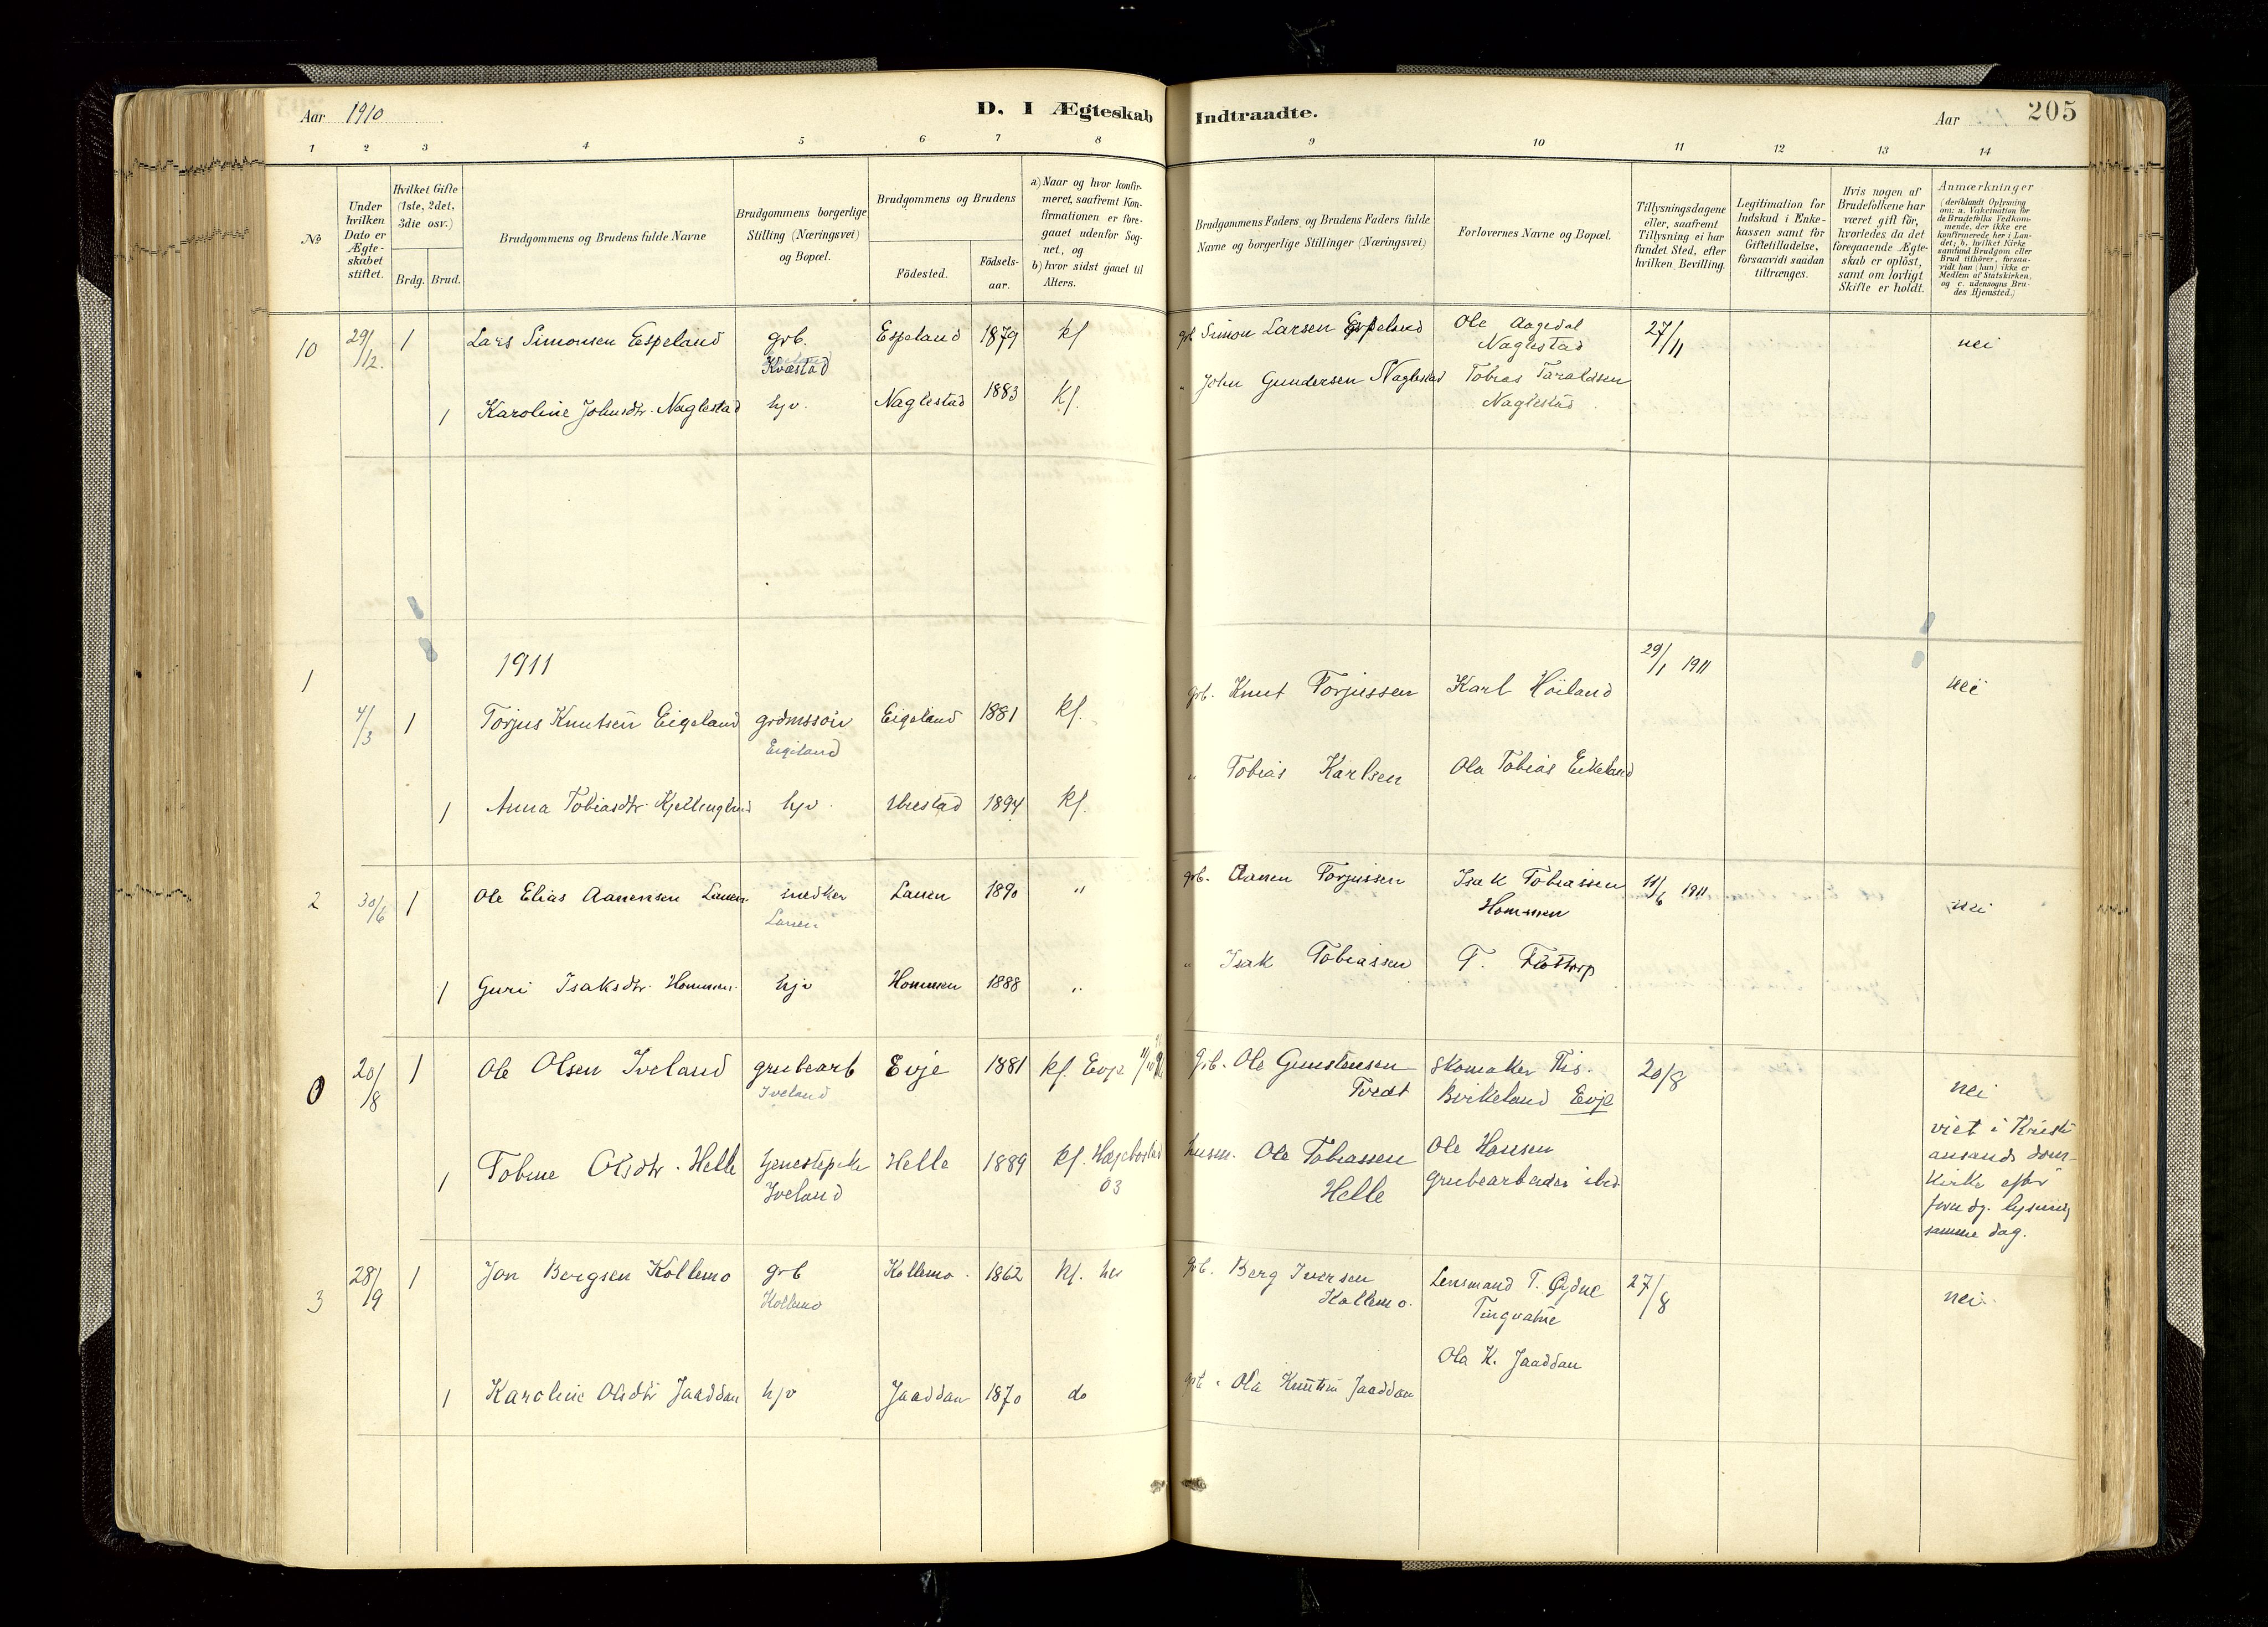 Aar 1910
D. I Ægteskab Indtraadte.
Aar
205
1 2 3 4 5 6 7 8 9 10 11 12 13 14
No
Under hvilken Dato er Ægte-skabet stiftet.
Hvilket Gifte (1ste, 2det, 3die osv.)
Brdg. Brud.
Brudgommens og Brudens fulde Navne
Brudgommens borgerlige Stilling (Næringsvei) og Bopæl.
Brudgommens og Brudens
Födested.
Födsels-aar.
a) Naar og hvor konfir-meret, saafremt Kon-firmationen er fore-gaaet udenfor Sog-net, og
b) hvor sidst gaaet til Alters.
Brudgommens Faders og Brudens Faders fulde Navne og borgerlige Stillinger (Næringsvei)
Forlovernes Navne og Bopæl.
Tillysningsdagene eller, saafremt Tillysning ei har fundet Sted, efter hvilken Bevilling.
Legitimation for Indskud i Enke-kassen samt for Giftetilladelse, forsaavidt saadan tiltrænges.
Hvis nogen af Brudefolkene har været gift før, hvorledes da det foregaaende Ægte-skab er oplöst, samt om lovligt Skifte er holdt.
Anmærkninger (deriblandt Oplysning om: a. Vakcination for de Brudefolks Vedkom-mende, der ikke ere konfirmerede her i Lan-det; b. hvilket Kirke samfund Brudgom eller Brud tilhører, forsaa-vidt han (hun) ikke er Medlem af Statskirken, og c. udensogns Bru-des Hjemsted.)
10 29/12. 1 Lars Simonsen Espeland grb. Espeland 1879 kf grb Simon Larsen Espeland Ole Aagedal 27/11 nei
Kvæstad Naglestad
1 Karoline Johnsdtr. Naglestad hjv. Naglestad 1883 kf. " John Gundersen Naglestad Tobias Taraldsen
Naglestad
1911
1 4/3 1 Torjus Knutsen Eigeland grdmssön Eigeland 1881 kf. grb. Knut Torjussen Karl Höiland 29/1 1911 nei
Eigeland
1 Anna Tobiasdtr. hjv. 1894 kf. " Tobias Karlsen Ola Tobias Eikeland
2 30/6 1 Ole Elias Aanensen Lauen snedker Lauen 1890 " grb. Aanen Torjussen Isak Tobiassen 11/6 1911 nei
Lauen Hommen
1 Guri Isaksdtr. Hommen. hjv Hommen 1888 " " Isak Tobiassen T. Flottorp
0 20/8 1 Ole Olsen Iveland grubearb Evje 1881 kf. Evje grb. Ole Gunstensen Skomaker Ths. 20/8 nei
Iveland Tvedt Birkeland Evje
1 Tobine Olsdtr. Helle tjenestepike Helle 1889 kf. Hægebostad husm. Ole Tobiassen Ole Hansen
Iveland 03 Helle grubearbeider ibid
viet i Kristi
ansands dom-
kirke efter
lysning
samme dag.
3 28/9 1 Jon Bergsen Kollemo grb Kollemo. 1862 kf. her grb. Berg Iversen Lensmand T. Öydne 27/8 nei
Kollemo Kollemo. Tingvatne
1 Karoline Olsdtr Jaaddan hjv Jaaddan 1870 do grb. Ola Knutsen Jaaddan Ola K. Jaaddan